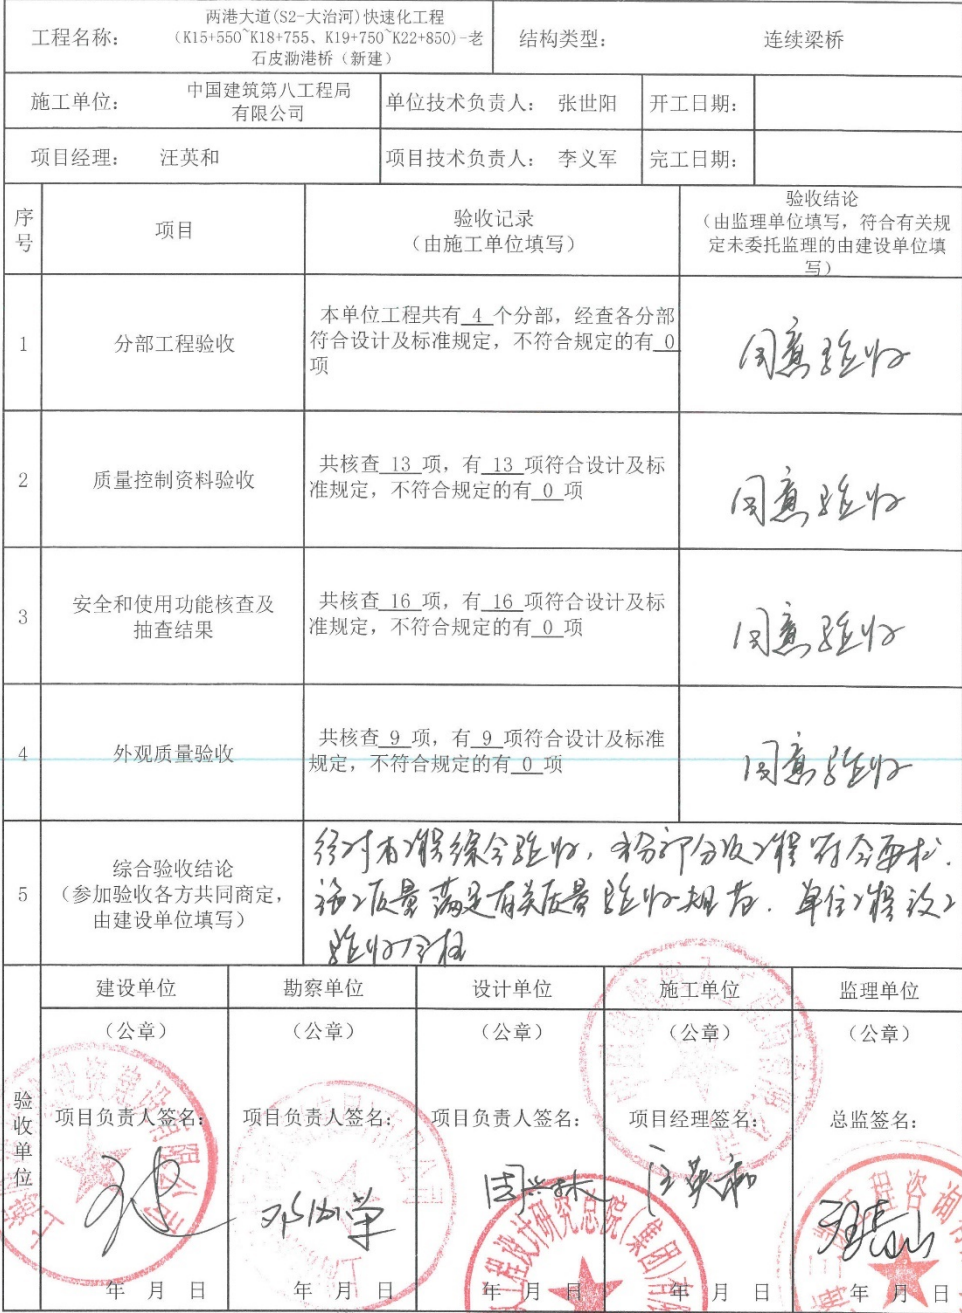 工程名称：
两港大道(S2-大治河)快速化工程
（K15+550~K18+755、K19+750~K22+850)-老
石皮泐港桥（新建）
结构类型：
连续梁桥
施工单位：
中国建筑第八工程局
有限公司
单位技术负责人： 张世阳
开工日期：
项目经理： 汪英和
项目技术负责人： 李义军
完工日期：
序
号
项目
验收记录
（由施工单位填写）
验收结论
（由监理单位填写，符合有关规
定未委托监理的由建设单位填
写）
1
分部工程验收
本单位工程共有 4 个分部，经查各分部
符合设计及标准规定，不符合规定的有 0
项
同意验收
2
质量控制资料验收
共核查 13 项，有 13 项符合设计及标
准规定，不符合规定的有 0 项
同意验收
3
安全和使用功能核查及
抽查结果
共核查 16 项，有 16 项符合设计及标
准规定，不符合规定的有 0 项
同意验收
4
外观质量验收
共核查 9 项，有 9 项符合设计及标准
规定，不符合规定的有 0 项
同意验收
5
综合验收结论
（参加验收各方共同商定，
由建设单位填写）
经对本工程综合验收，各分部分项工程符合要求.
施工质量满足有关质量验收规范. 单位工程竣工
验收合格
验收单位
建设单位
勘察单位
设计单位
施工单位
监理单位
（公章）
（公章）
（公章）
（公章）
（公章）
项目负责人签名：
项目负责人签名：
项目负责人签名：
项目经理签名：
总监签名：
汪英和
年 月 日
年 月 日
年 月 日
年 月 日
年 月 日
工程设计研究总院(集团)有限
工程咨询